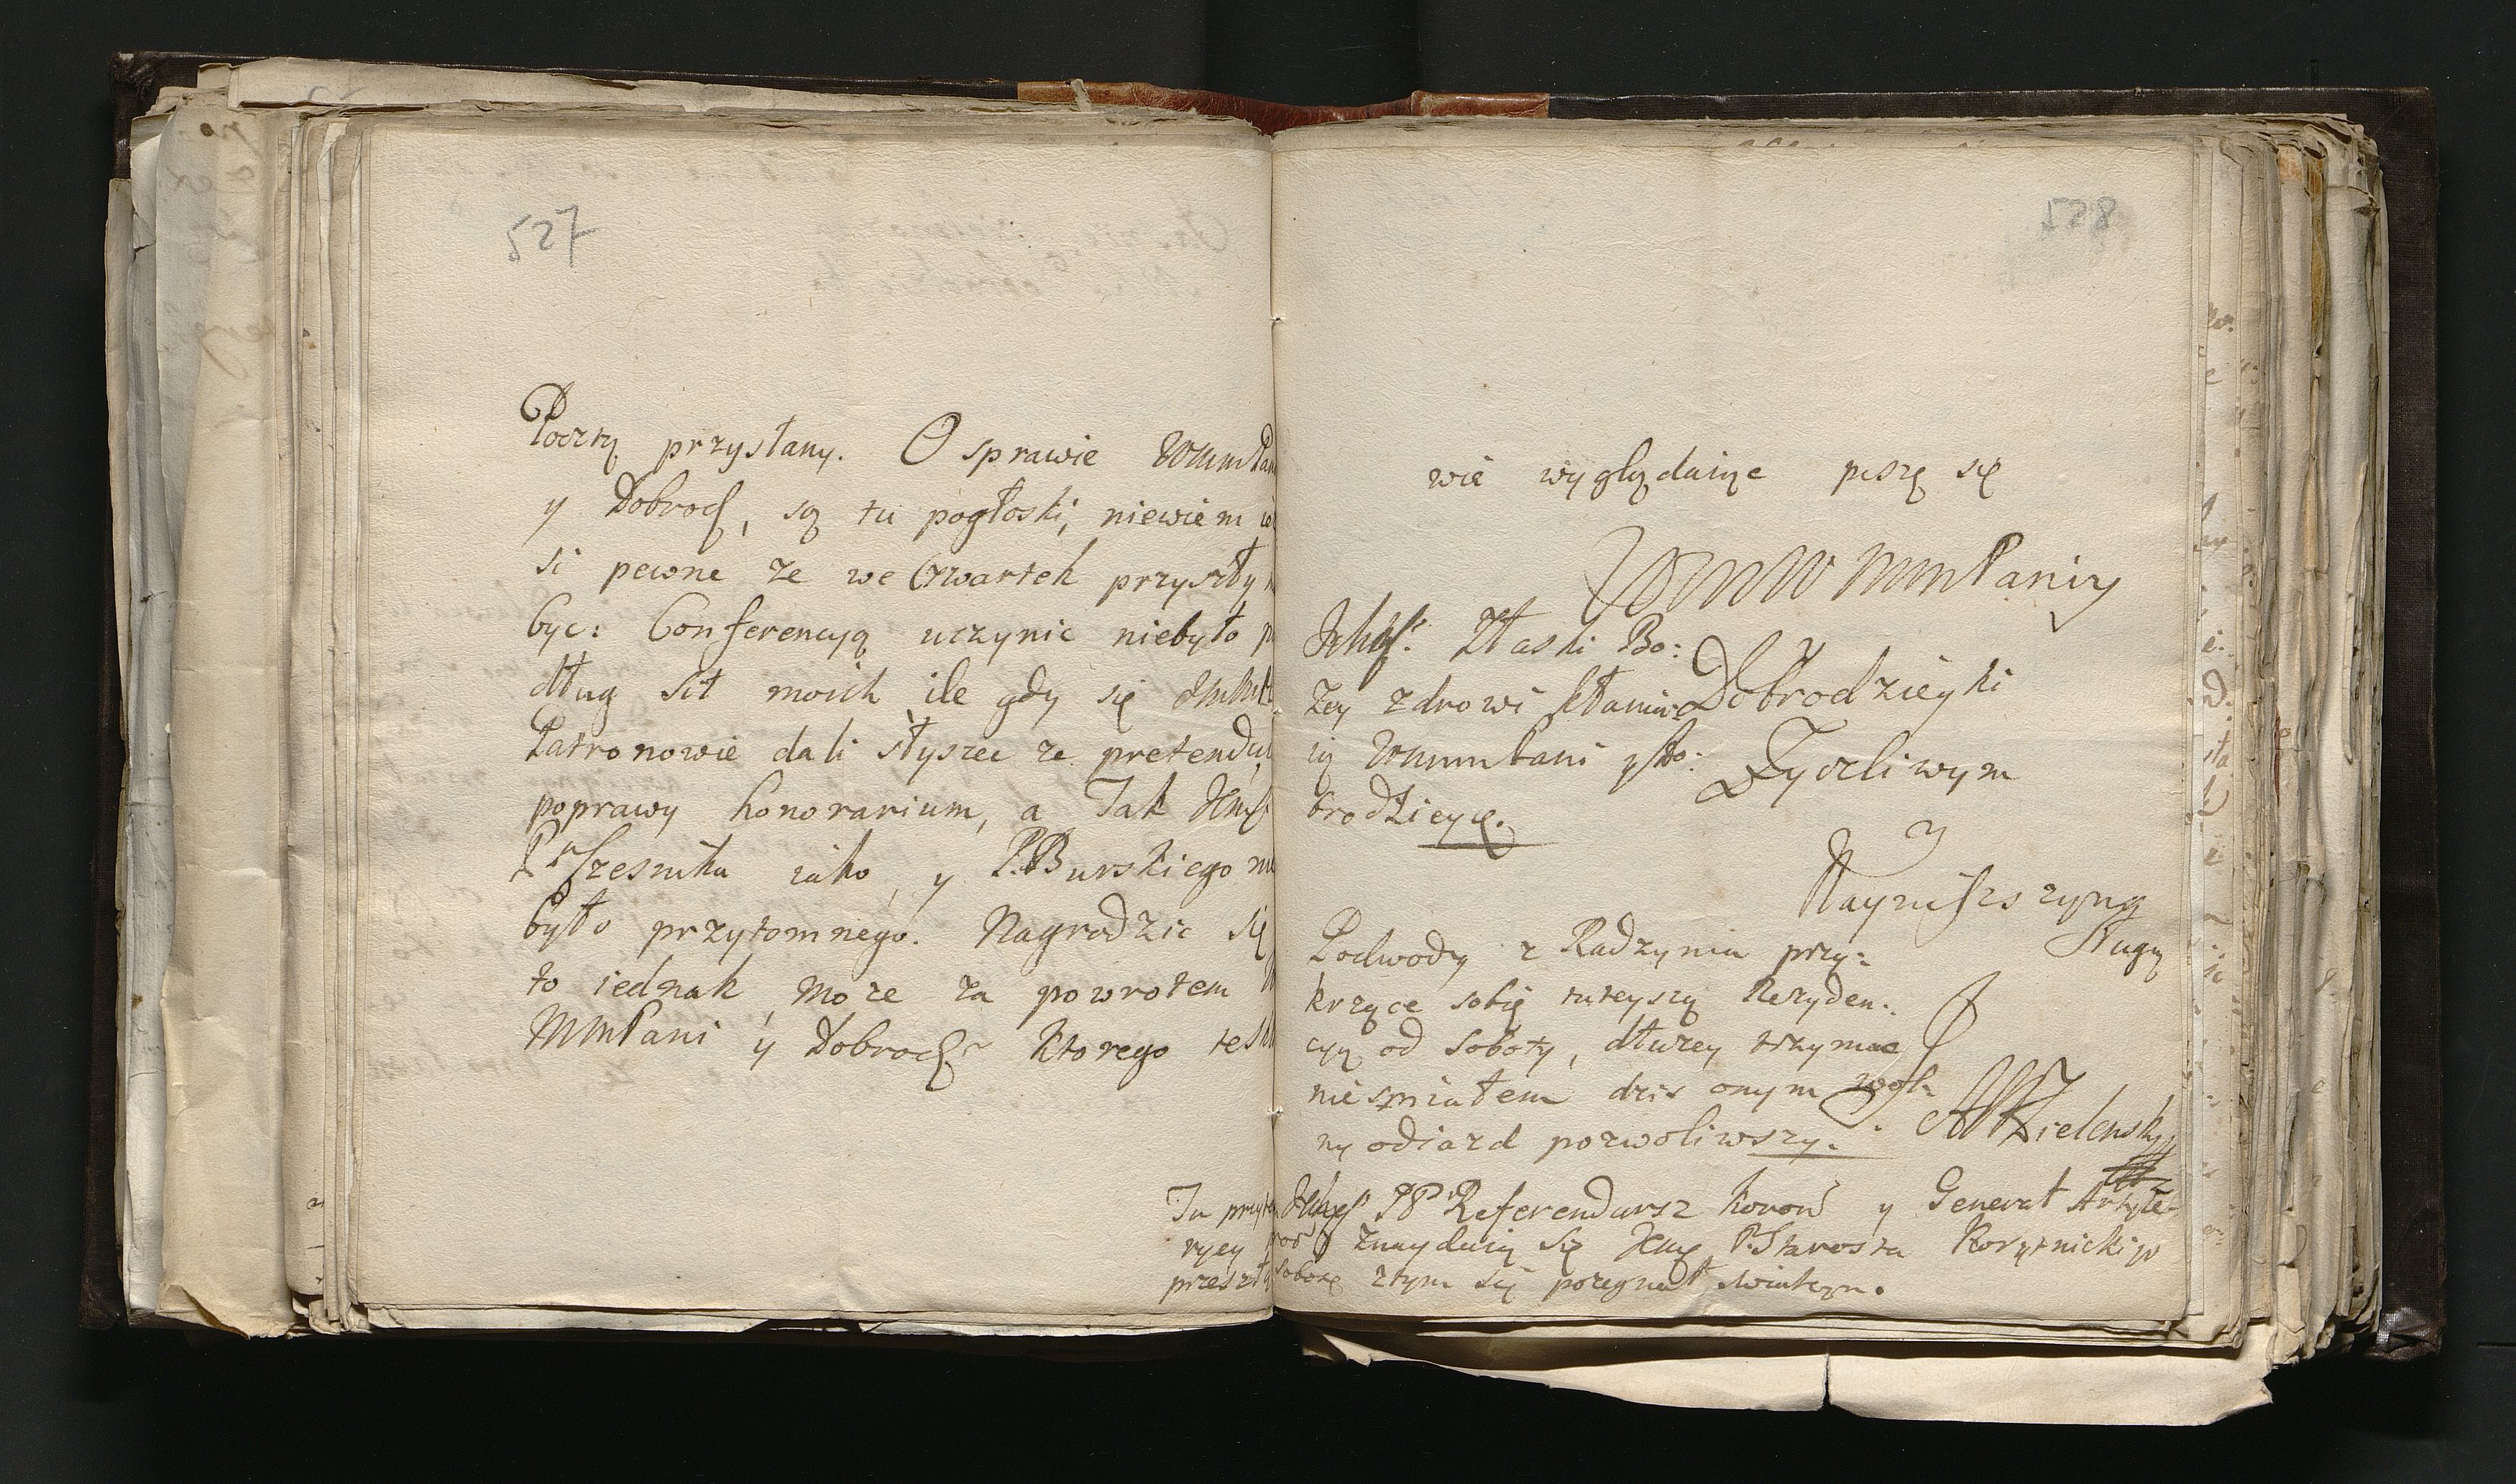 527
Pocztą przysłany. O sprawie WmmPani
y Dobrodz, są tu pogłoski, niewiem
si pewne ze we Czwartek przyszły
byc: Conferencyą uczynic niebyło
dług sił moich ile gdy się
Patronowie dali słyszec ze pretendu
poprawy honorarium, a Jak
Czesnika iako, y P. Burskiego nie
było przytomnego. Nagrodzic się
to iednak może za powrotem
MmPani y Dobrodz Ktorego
528
wie wyglądaiąc piszę się
WmmPaniy
Dobrodzieyki
Zyczliwym
y
Nayniższym
Sługą
Zielensky
Ichmć. Z łaski Bo:
zey zdrowi kłaniaią
ią WmmPani y Do:
brodzieyce.
Podwody z Radzynia przy:
krzące sobie tuteyszą Rezyden:
cyą od Soboty, dłużey trzymac
nie smiałem dzis onym wol:
ny odiazd pozwoliwszy.
Tu Referendarz Koron y Generał Artyle-
ryey znayduią się P. Starosta Korytnicki
przeszłą sobotę ztym się pozegnał swiatem.